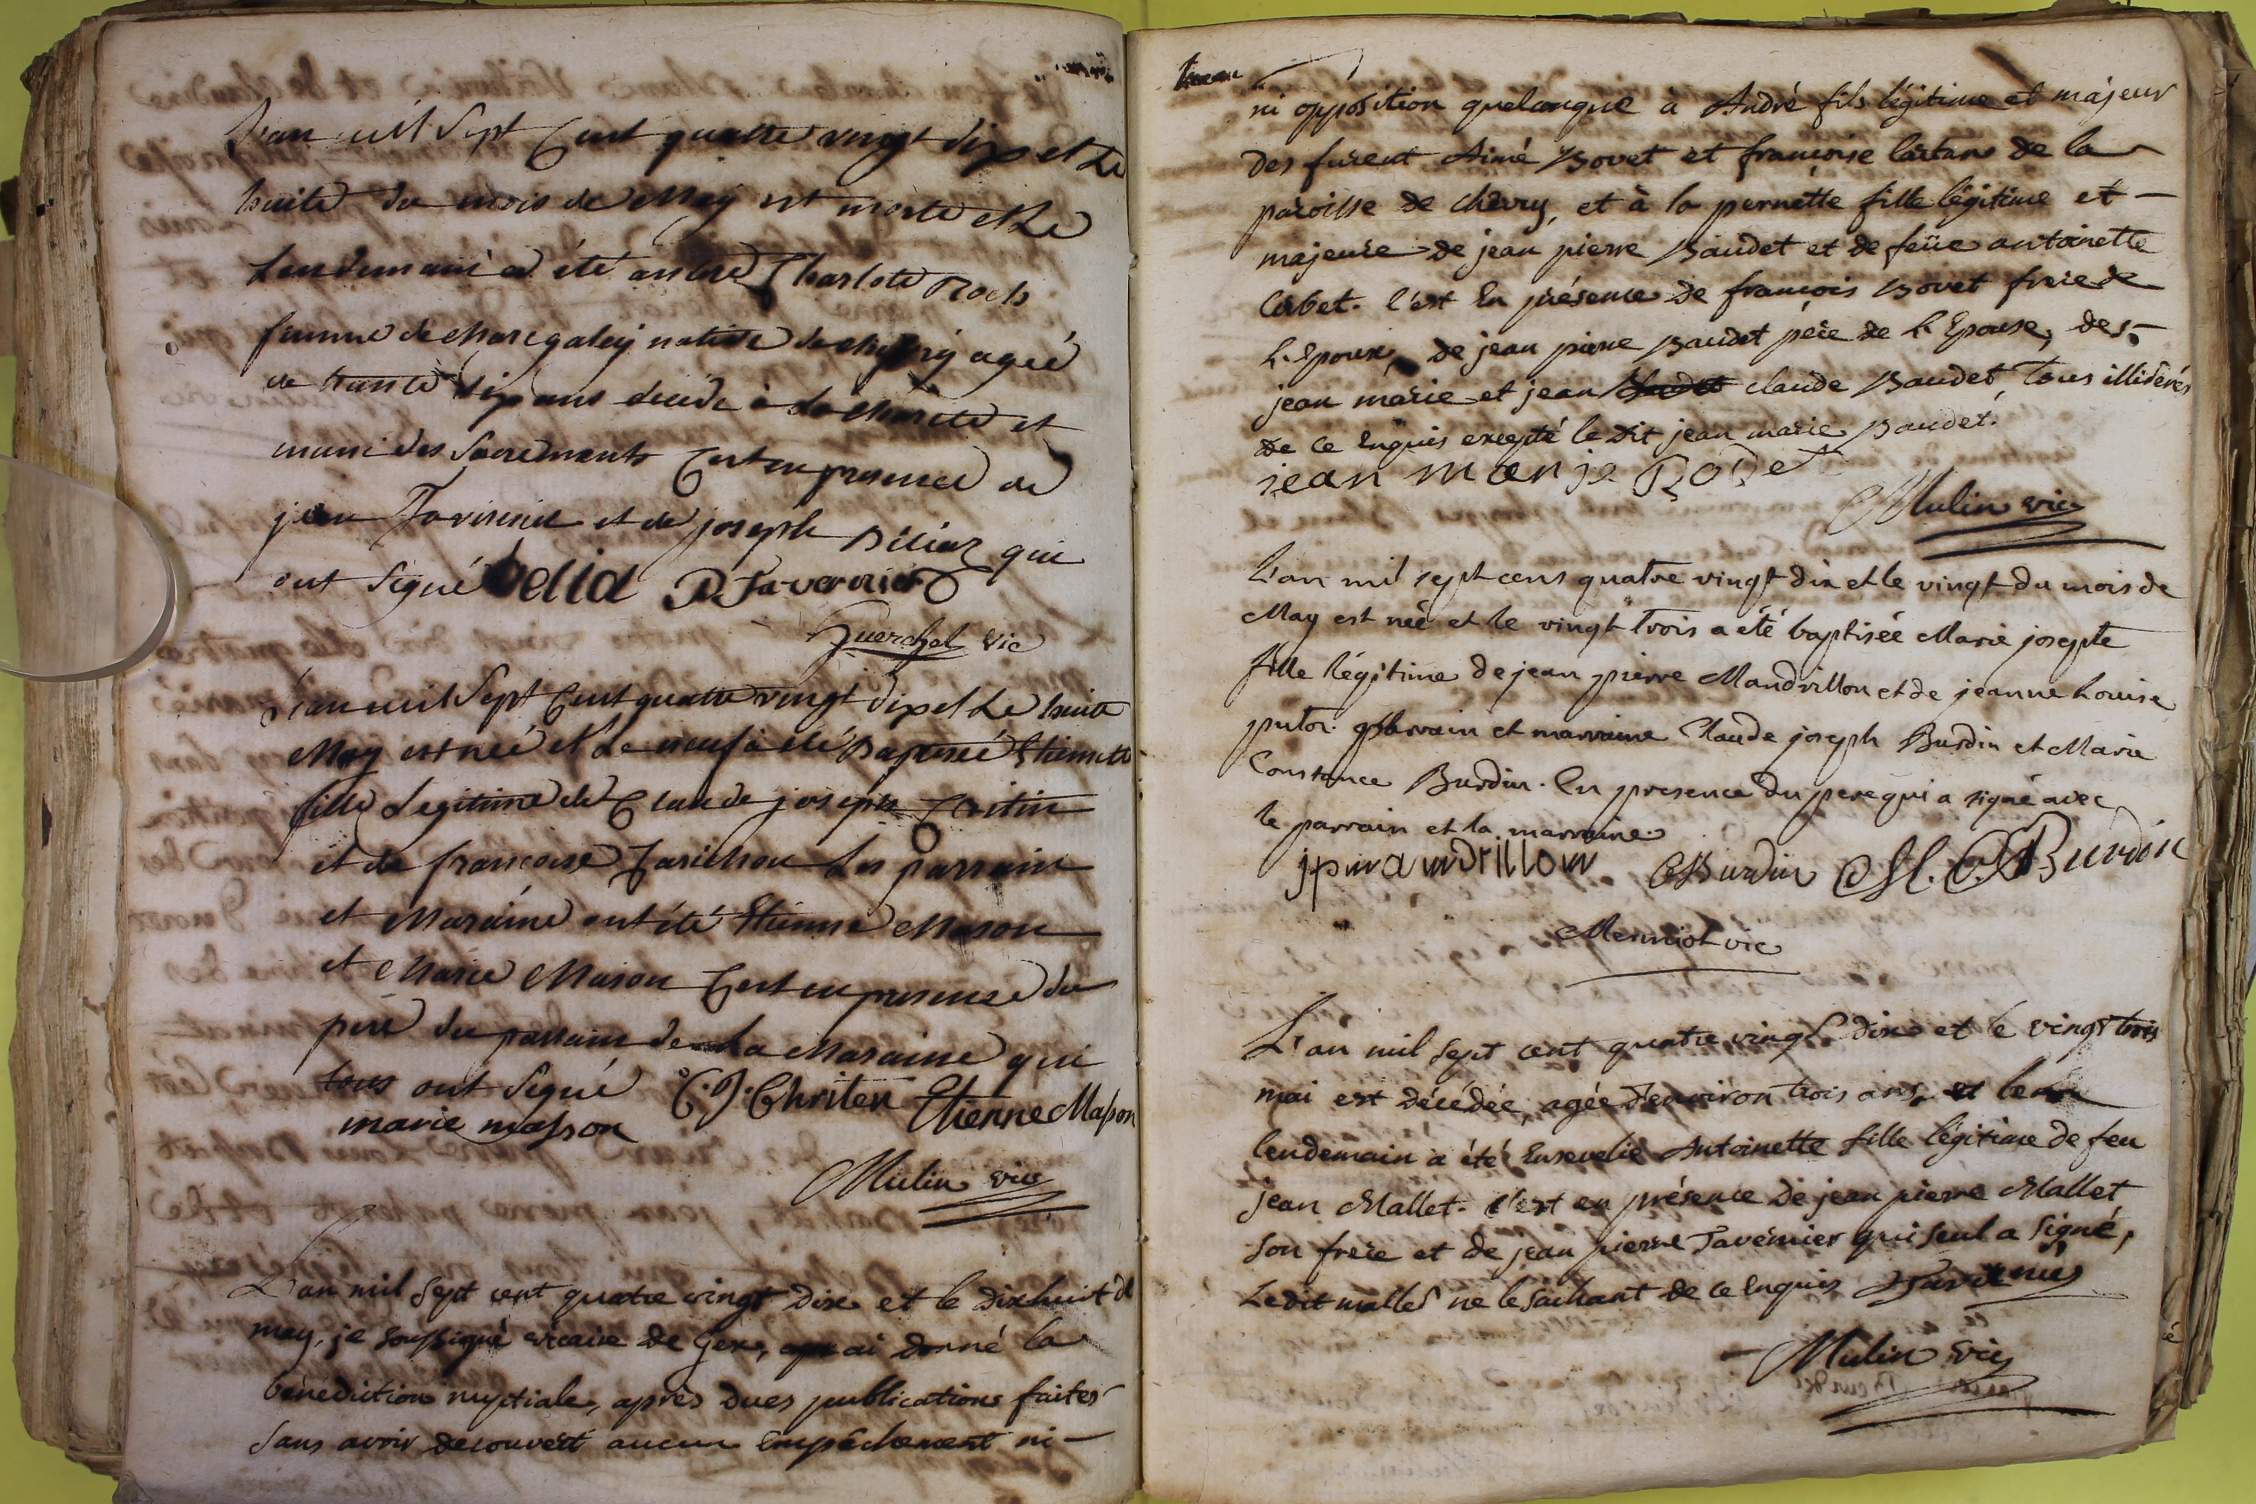 L'an mil Sept Cent quatre vingt dix et Le
huite du mois de May est morte et Le
Lendemain a été Charlote Roch
femme de Marc galey native de agée
de trente six ans decede à la charité et
muni des Sacrements C'est en presence de
jean Tavernier et de joseph qui
ont Signé P Tavernier
vic
L'an mil Sept Cent quatre vingt dix et Le huite
May est née et Le neuf à été Baptisée Etiennette
fille Legitime de Claude joseph Critin
et de francoise Les parrain
et Maraine ont été Etienne Mason
et Marie Mason C'est en presence du
pere du parrain de La Maraine qui
tous ont Signé C. J. Chriten Etienne Masson
marie masson
Mulin vic
L'an mil Sept cent quatre vingt dix et le dixhuit de
may, je soussigné vicaire de Gex, ai donné la
bénédiction nuptiale, après dues publications faites
Sans avoir découvert aucun Empêchement ni
ni opposition quelconque à André fils légitime et majeur
des furent Aimé Bovet et françoise de la
paroisse de Chevry, et à la pernette fille légitime et
majeure de jean pierre Baudet et de feüe antoinette
C'est En présence de françois Bovet frere de
L'Epoux, de jean pierre Baudet père de L'Epouse, des
jean marie et jean claude Baudet Tous illiterés
de ce Enquis excepté le dit jean marie Baudet.
jean marie Bodet
Mulin vic
L'an mil sept cens quatre vingt dix et le vingt du mois de
May est née et le vingt trois a été baptisée Marie josephte
fille légitime de jean pierre Mandrillon et de jeanne Louise
putor. parrain et marraine Claude joseph Burdin et Marie
Constance Burdin. En presence du pere qui a signé avec
le parrain et la marraine.
jp mandrillon CJ Burdin M. C. Burdin
vic
L'an mil Sept cent quatre vingt dix et le vingt trois
mai est décédée, agée d'environ trois ans, et le
lendemain a été Ensevelie Antoinette fille légitime de feu
jean Mallet. c'est en présence de jean pierre Mallet
Son frere et de jean pierre Tavernier qui seul a signé,
Ledit mallet ne le Sachant de ce Enquis Tavernier
Mulin vic